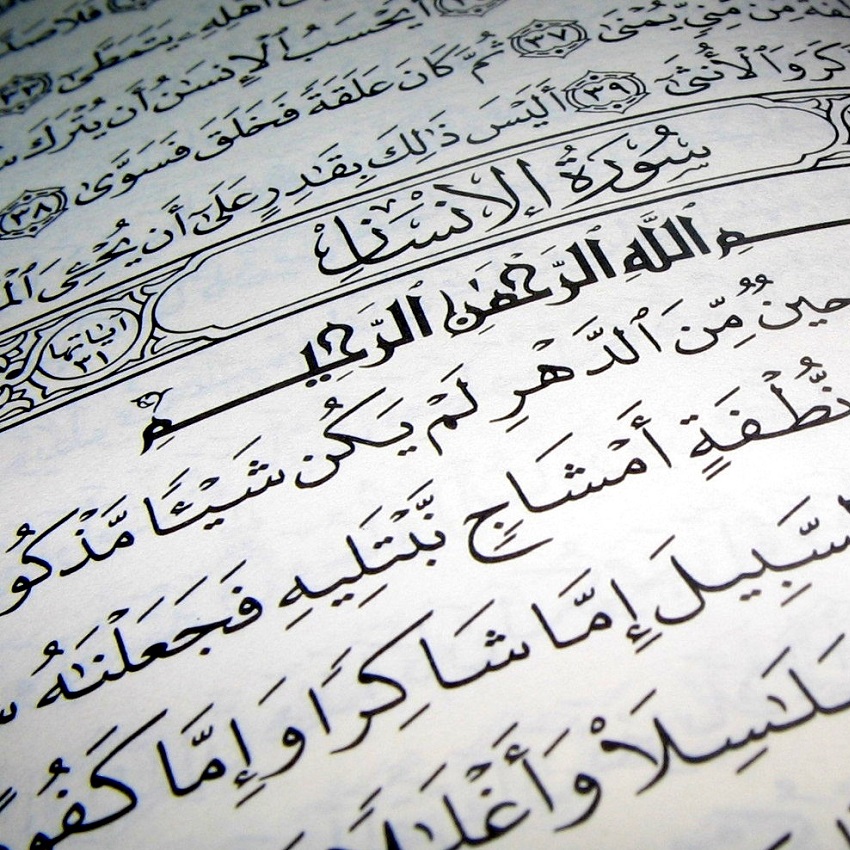 فَلَا صَدَّ
أَهْلِهِۦ يَتَمَطَّىٰٓ ٣٣
أَيَحْسَبُ ٱلْإِنسَٰنُ أَن يُتْرَكَ
مِّن مَّنِىٍّ يُمْنَىٰ ٣٧ ثُمَّ كَانَ عَلَقَةً فَخَلَقَ فَسَوَّىٰ ٣٨
ذَّكَرَ وَٱلْأُنثَىٰٓ ٣٩ أَلَيْسَ ذَٰلِكَ بِقَٰدِرٍ عَلَىٰٓ أَن يُحْـِۧىَ ٱلْمَ
سُورَةُ الإِنسَانِ
آيَاتُهَا ٣١
بِسْمِ ٱللَّهِ ٱلرَّحْمَٰنِ ٱلرَّحِيمِ
حِينٌ مِّنَ ٱلدَّهْرِ لَمْ يَكُن شَيْـًٔا مَّذْكُو
نُّطْفَةٍ أَمْشَاجٍ نَّبْتَلِيهِ فَجَعَلْنَٰهُ سَ
ٱلسَّبِيلَ إِمَّا شَاكِرًا وَإِمَّا كَفُو
سَلَٰسِلَا۟ وَأَغْلَٰلًا